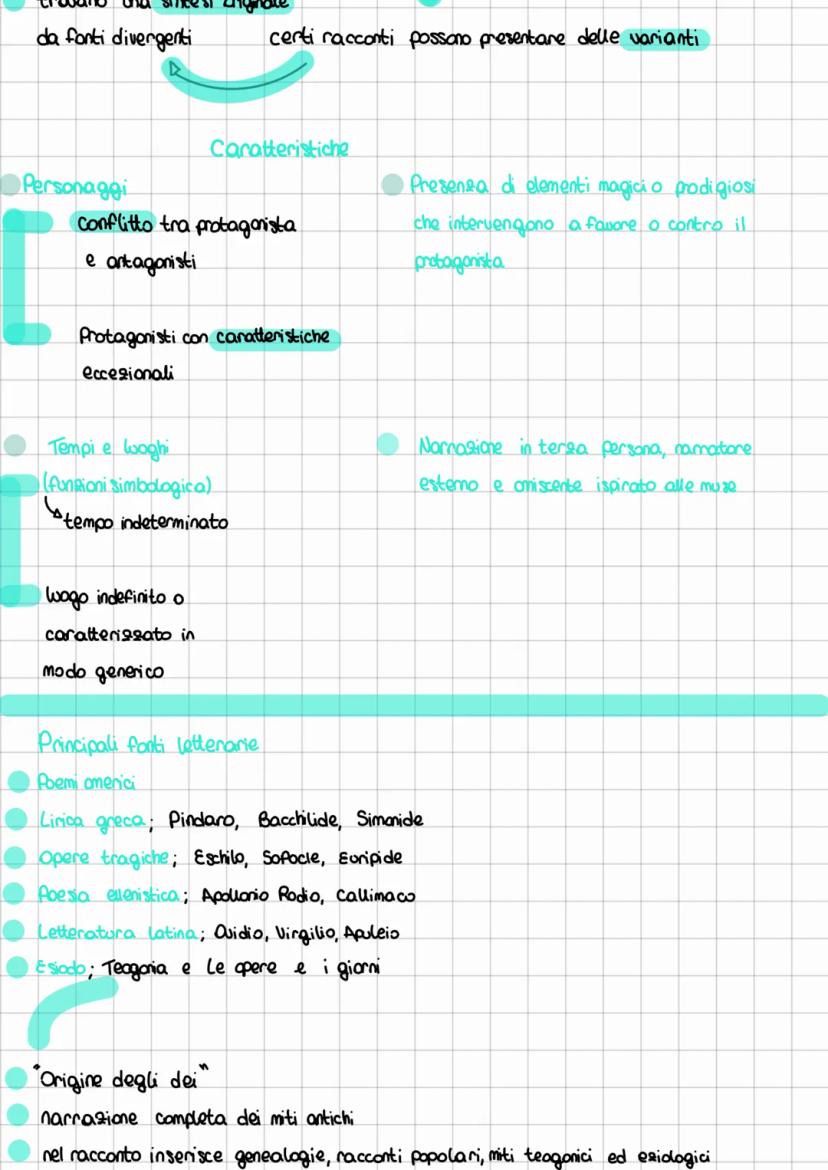 trovano una sintesi originale
da fonti divergenti
certi racconti possono presentare delle varianti
Caratteristiche
Personaggi
conflitto tra protagonista
e antagonisti
Protagonisti con caratteristiche
eccezionali
Presenza di elementi magici o prodigiosi
che intervengono a favore o contro il
protagonista
Tempi e luoghi
(funzioni simbologica)
tempo indeterminato
luogo indefinito o
caratterizzato in
modo generico
Narrazione in terza persona, narratore
esterno e onisciente ispirato alle muse
Principali fonti letterarie
Poemi omerici
Lirica greca; Pindaro, Bacchilide, Simonide
Opere tragiche; Eschilo, Sofocle, Euripide
Poesia ellenistica; Apollonio Rodio, Callimaco
Letteratura latina; Ovidio, Virgilio, Apuleio
Esiodo; Teogonia e Le opere e i giorni
"Origine degli dei"
narrazione completa dei miti antichi
nel racconto inserisce genealogie, racconti popolari, miti teogonici ed eziologici